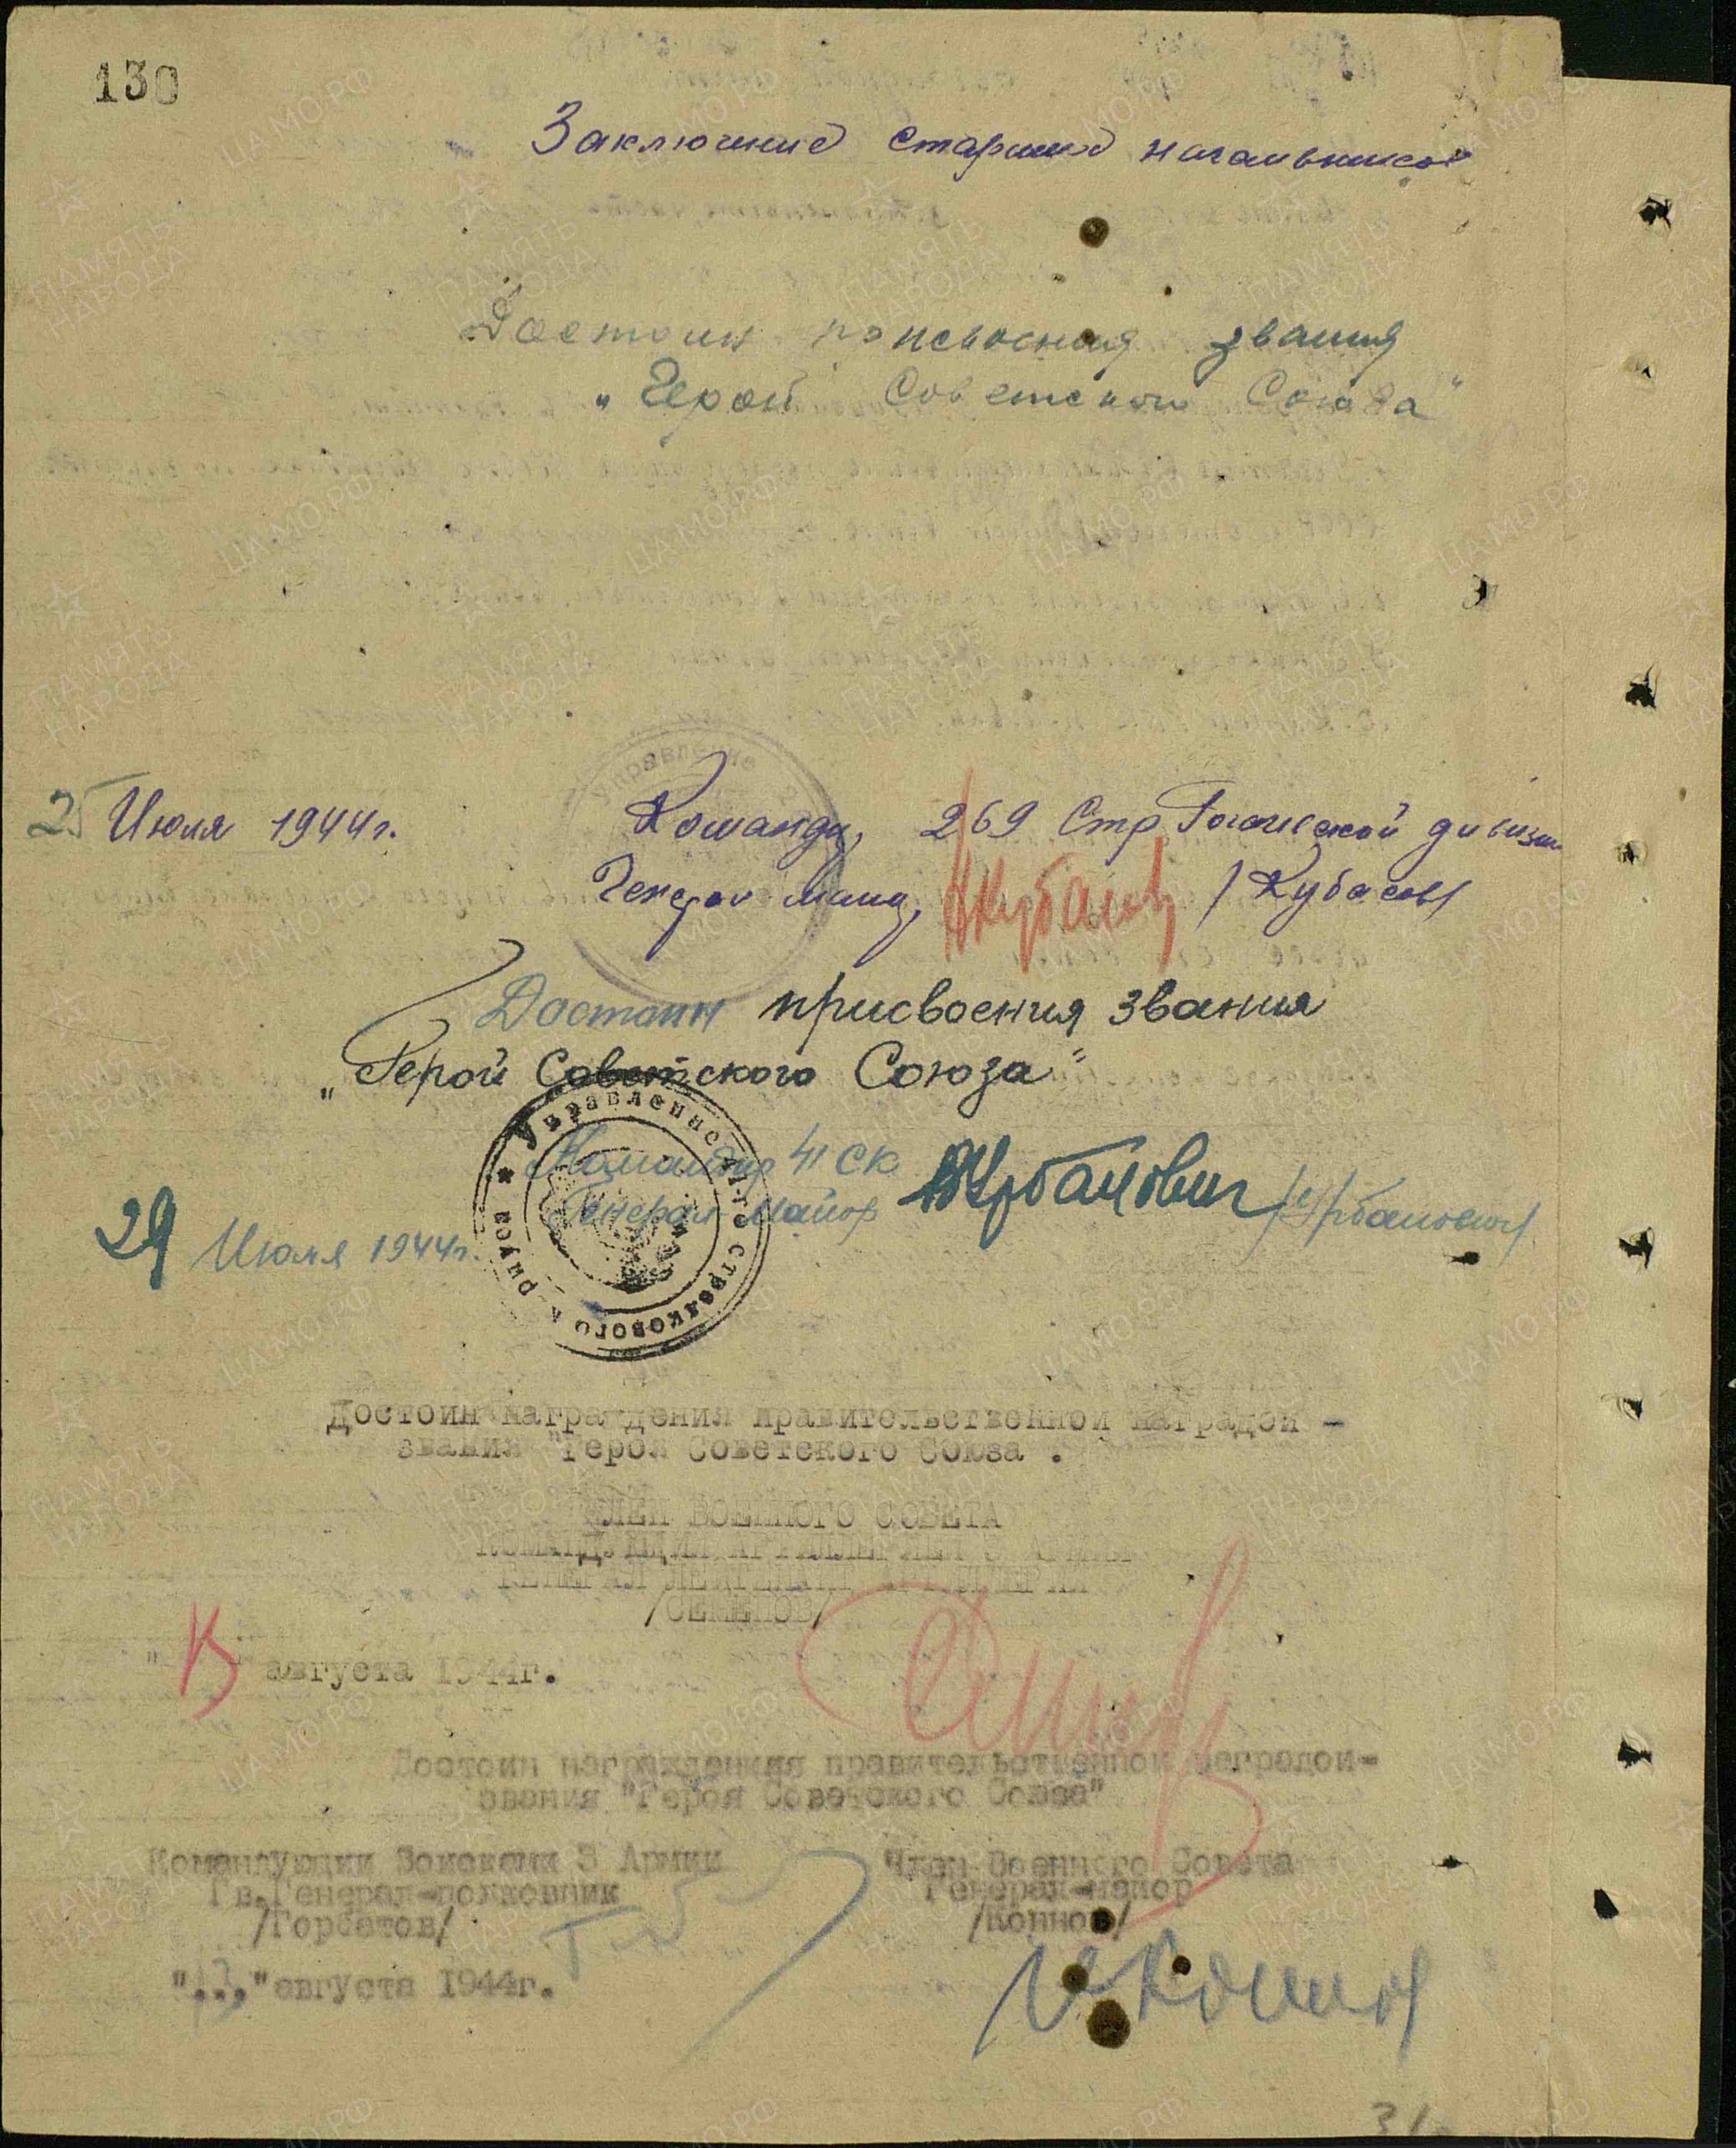 130
Заключение старших начальников
Достоин присвоения звания
„Герой Советского Союза"
25 Июля 1944г.
Командир 269 Стр Рогачевской дивизии
Генерал майор Кубасов /Кубасов/
Достоин присвоения звания
„Герой Советского Союза"
Командир 41 СК
Генерал-майор Урбанович /Урбанович/
29 Июля 1944г.
Управление 41-го стрелкового корпуса
Достоин награждения правительственной наградой -
звания "Героя Советского Союза".
ЧЛЕН ВОЕННОГО СОВЕТА
КОМАНДУЮЩИЙ АРТИЛЛЕРИЕЙ 3 АРМИИ
ГЕНЕРАЛ ЛЕЙТЕНАНТ АРТИЛЛЕРИИ
/СЕМЕНОВ/
августа 1944г.
Достоин награждения правительственной наградой-
звания "Героя Советского Союза"
Командующий Войсками 3 Армии
Гв.Генерал-полковник
/Горбатов/
Член Военного Совета
Генерал-майор
/Коннов/
"13" августа 1944г.
И Коннов
ПАМЯТЬ НАРОДА
ЦАМО.РФ